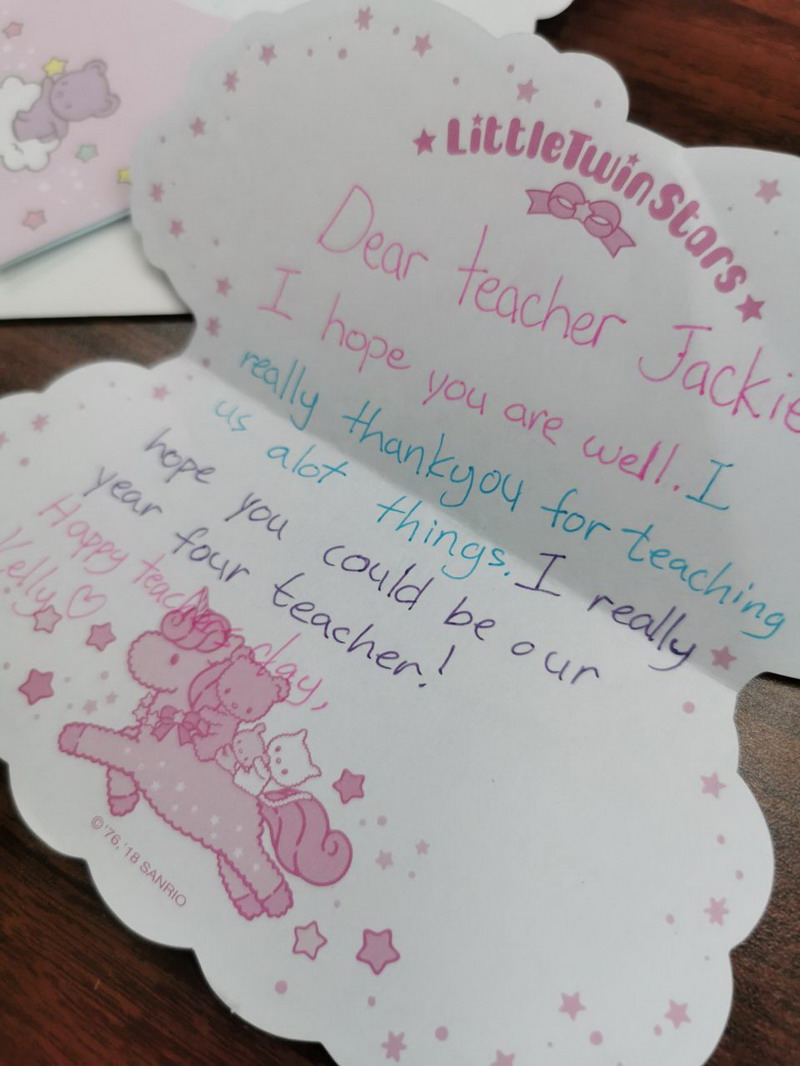 LittleTwinStars
Dear teacher Jackie
I hope you are well. I
really thankyou for teaching
us alot things. I really
hope you could be our
year four teacher!
Happy teachers day,
Kelly ♡
©'76, '18 SANRIO